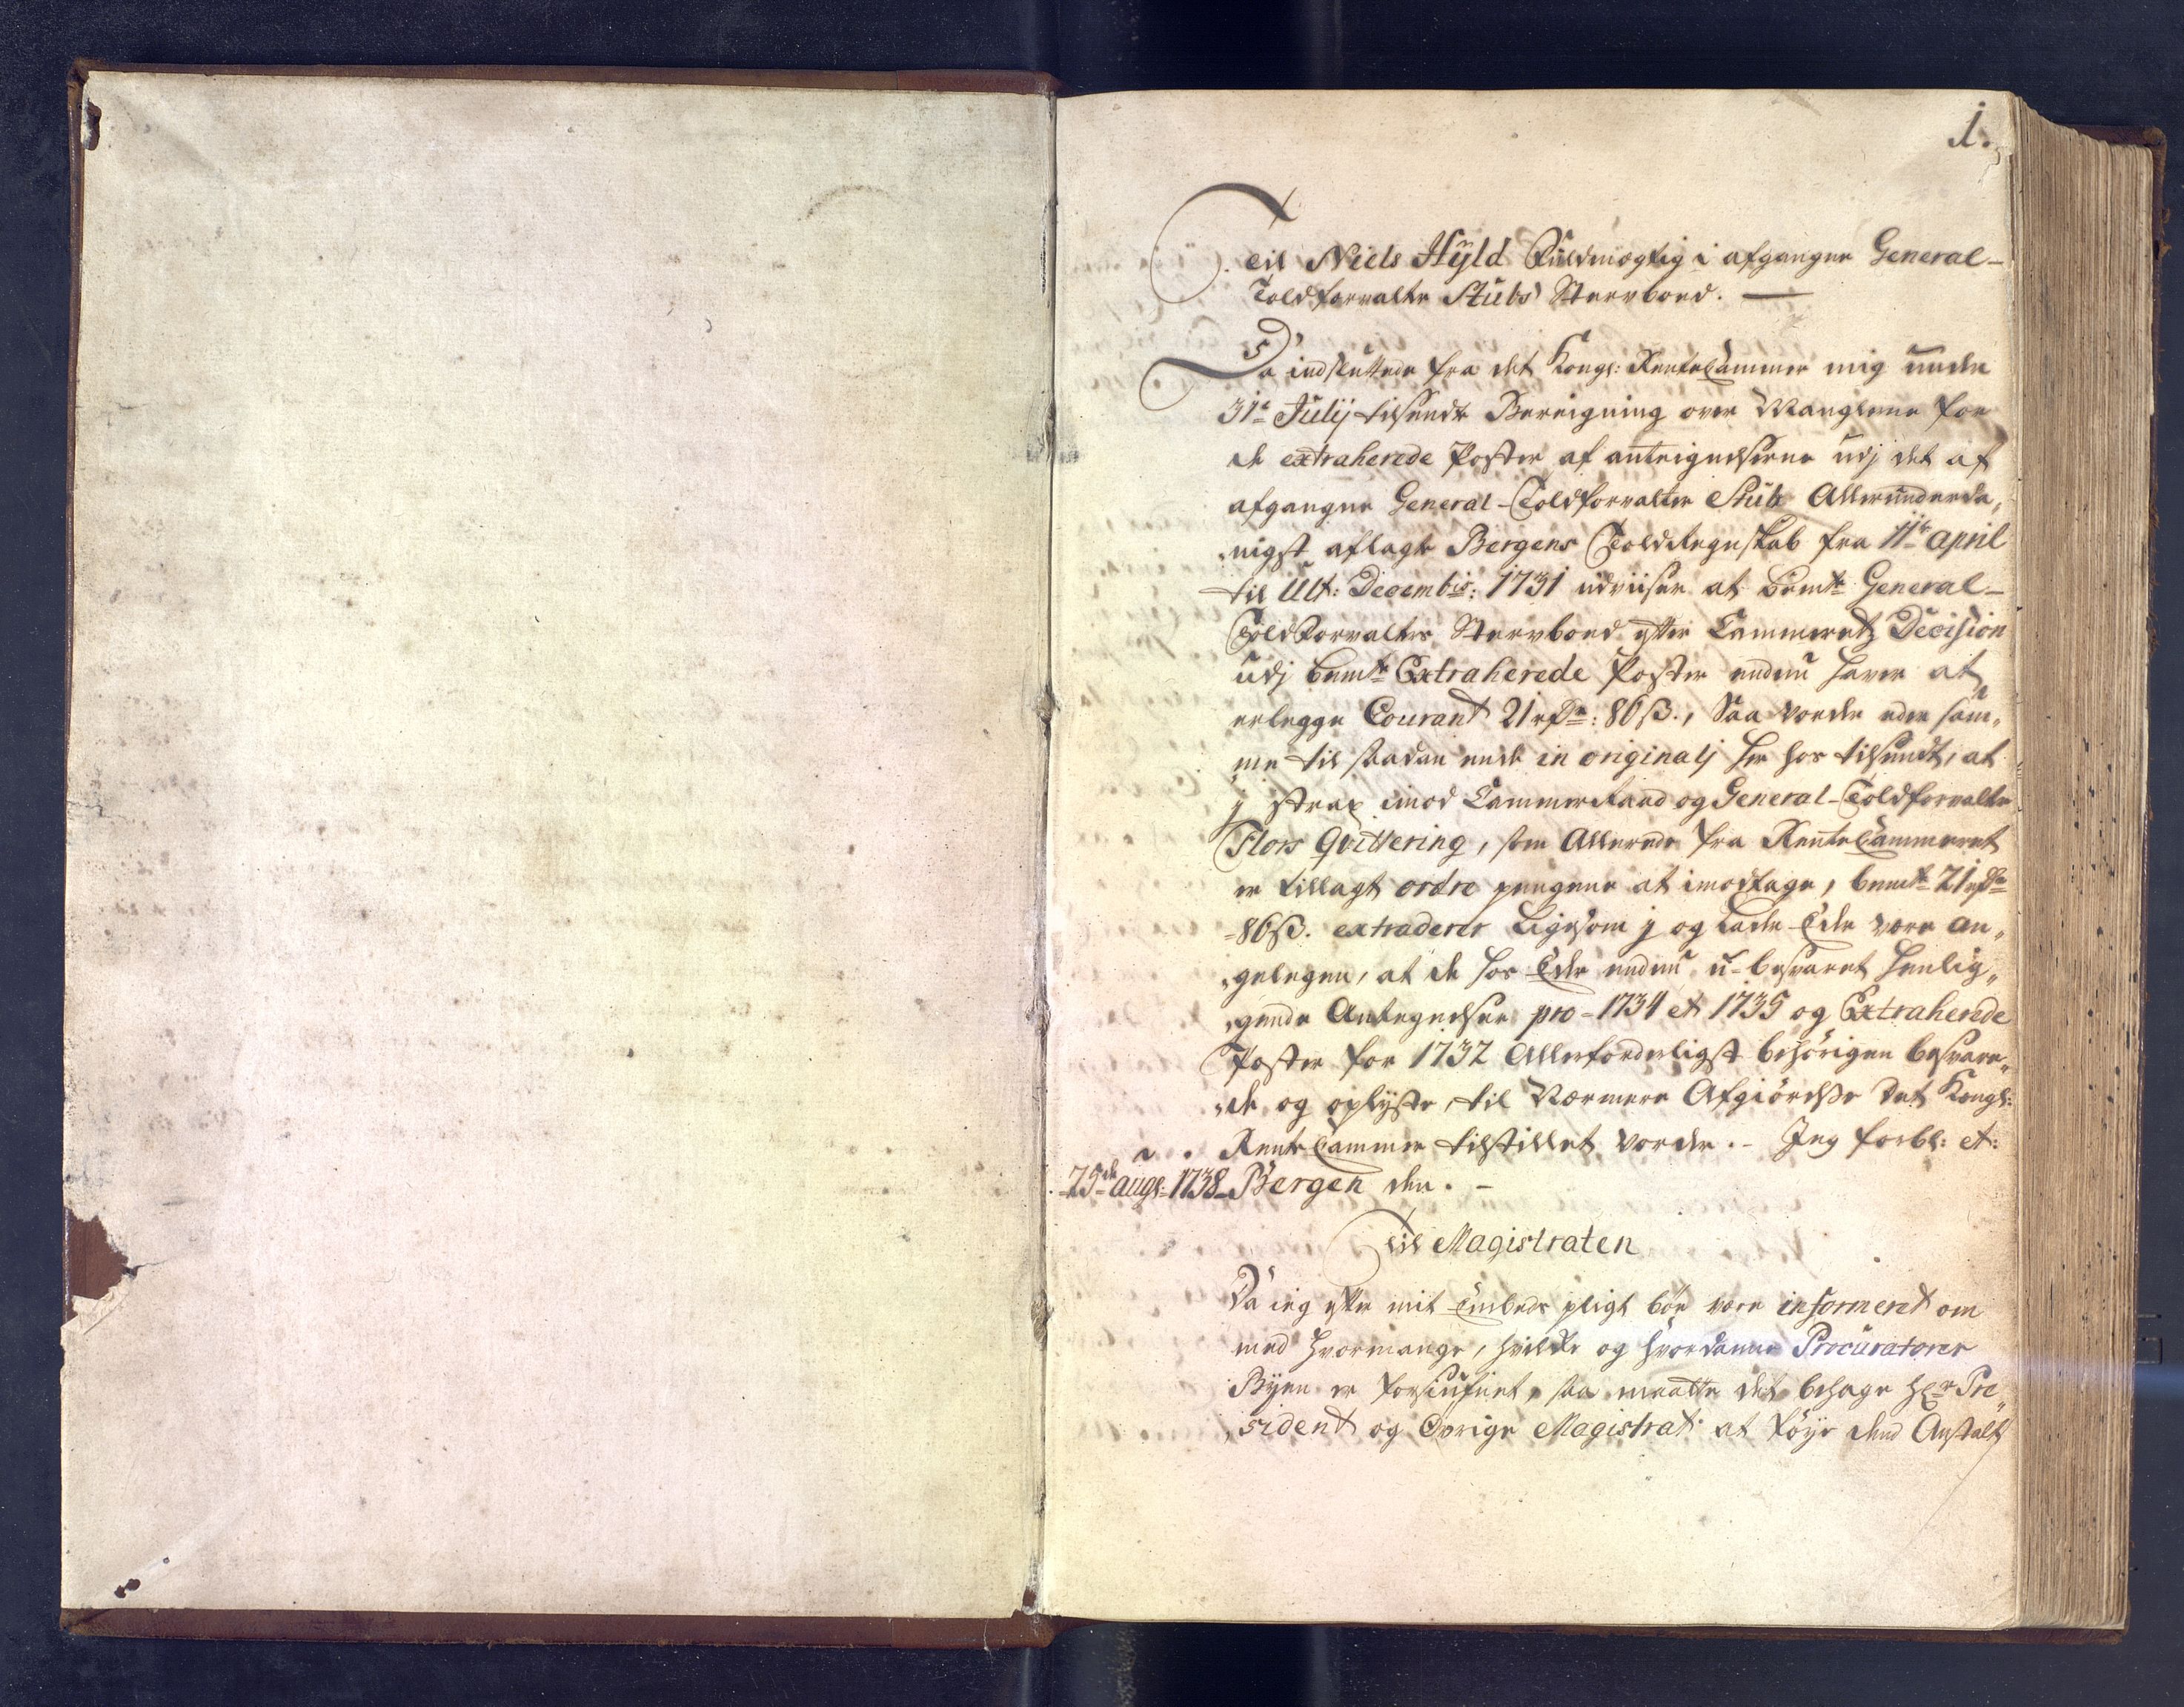 1.
Til Niels Hÿld Fuldmægtig i afgangne General-
Toldforvalter Stubs Sterboed.
Da indsluttede fra det Kongl: RenteCammer mig under
31te Julij tilsendte Bereigning over Manglerne for
de extraherede Poster af anteignelserne udj det af
afgangne General-Toldforvalter Stub Allerunderda„
„nigst aflagte Bergens Told Regnskab fra 11te april
til Ult: Decembis: 1731 udviiser at bemte General-
ToldForvalters Sterboed efter Cammerets Decision
udj bemte Extraherede Poster endnu haver at
erlegge Courant 21 rdr: 86 ß., Saa vorder eder sam„
me til saadan ende in originalj her hos tilsendt, at
j strax imod CammerRaad og General-Toldforvalter
Flors Qvittering, som Allerede fra RenteCammeret
er tillagt ordre pengene at imodtage, bemte 21 rdr
86 ß. extraderer Ligesom j og lader Eder være an„
„gelegen, at de hos Eder endnu u-besvaret henlig„
„gende Antegnelser pro 1734 et 1735 og Extraherede
Poster for 1732 Allerforderligst behörigen besvare„
„de og oplyste, til Nærmere Afgiörelse det Kongl:
Rente Cammer tilstillet vorder. - Jeg forbl: et:
25de augs: 1738 Bergen den. -
Til Magistraten
Da ieg efter mit Embeds pligt bör være informeret om
med hvormange, hvilke og hvordanne Procuratorer
Byen er forsiufnet, saa maatte det behage Hr Pre„
„sident og Övrige Magistrat at föye dend Anstalt